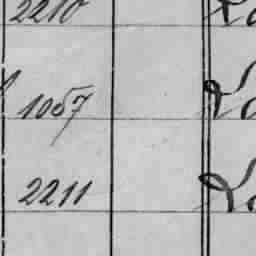 2210
1057
2211